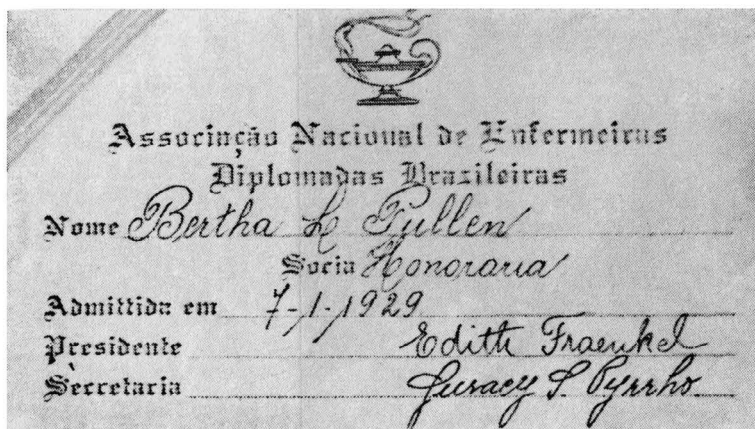 Associação Nacional de Enfermeiras
Diplomadas Brazileiras
Nome Bertha L Pullen
Socia Honoraria
Admittida em 7-1-1929
Presidente Edith Fraenkel
Secretaria Juracy S. Pyrrho